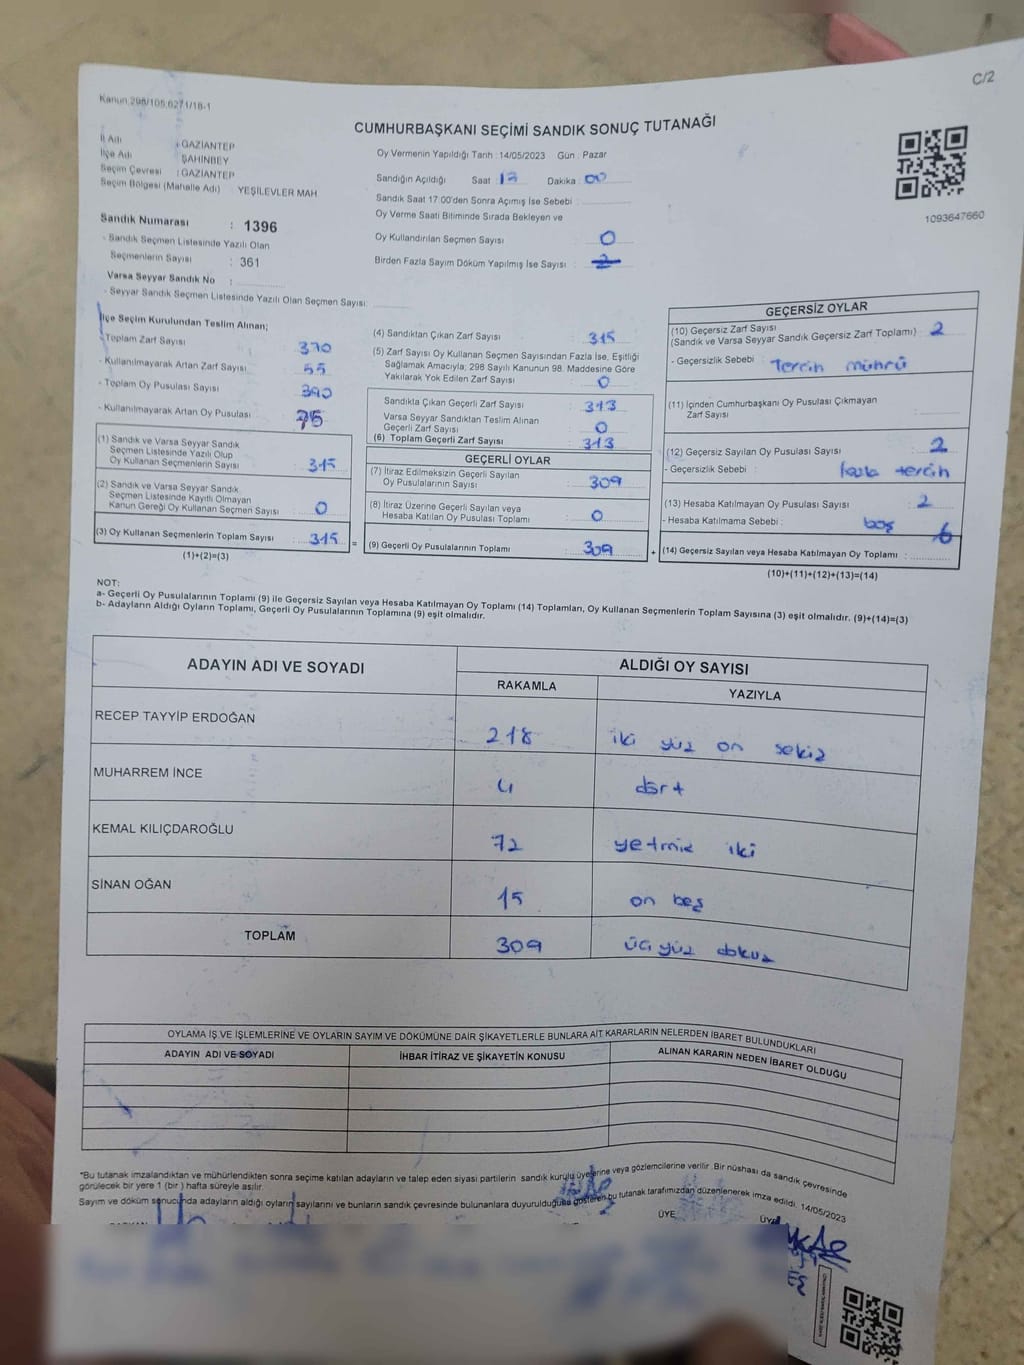 C/2
Kanun 298/105 6271/18-1
CUMHURBAŞKANI SEÇİMİ SANDIK SONUÇ TUTANAĞI
İl Adı : GAZİANTEP
İlçe Adı ŞAHİNBEY
Seçim Çevresi : GAZİANTEP
Seçim Bölgesi (Mahalle Adı) YEŞİLEVLER MAH
Sandık Numarası : 1396
- Sandık Seçmen Listesinde Yazılı Olan
Seçmenlerin Sayısı : 361
Varsa Seyyar Sandık No :
- Seyyar Sandık Seçmen Listesinde Yazılı Olan Seçmen Sayısı:
Oy Vermenin Yapıldığı Tarih : 14/05/2023 Gün : Pazar
Sandığın Açıldığı Saat : Dakika : 00
Sandık Saat 17:00'den Sonra Açımış İse Sebebi :
Oy Verme Saati Bitiminde Sırada Bekleyen ve
Oy Kullandırılan Seçmen Sayısı : 0
Birden Fazla Sayım Döküm Yapılmış İse Sayısı : 2
1093647660
İlçe Seçim Kurulundan Teslim Alınan;
- Toplam Zarf Sayısı 370
- Kullanılmayarak Artan Zarf Sayısı 55
- Toplam Oy Pusulası Sayısı 390
- Kullanılmayarak Artan Oy Pusulası 75
(1) Sandık ve Varsa Seyyar Sandık
Seçmen Listesinde Yazılı Olup
Oy Kullanan Seçmenlerin Sayısı : 315
(2) Sandık ve Varsa Seyyar Sandık
Seçmen Listesinde Kayıtlı Olmayan
Kanun Gereği Oy Kullanan Seçmen Sayısı : 0
(3) Oy Kullanan Seçmenlerin Toplam Sayısı : 315 =
(1)+(2)=(3)
(4) Sandıktan Çıkan Zarf Sayısı : 315
(5) Zarf Sayısı Oy Kullanan Seçmen Sayısından Fazla İse, Eşitliği
Sağlamak Amacıyla; 298 Sayılı Kanunun 98. Maddesine Göre
Yakılarak Yok Edilen Zarf Sayısı : 0
Sandıkta Çıkan Geçerli Zarf Sayısı : 313
Varsa Seyyar Sandıktan Teslim Alınan
Geçerli Zarf Sayısı : 0
(6) Toplam Geçerli Zarf Sayısı : 313
GEÇERLİ OYLAR
(7) İtiraz Edilmeksizin Geçerli Sayılan
Oy Pusulalarının Sayısı : 309
(8) İtiraz Üzerine Geçerli Sayılan veya
Hesaba Katılan Oy Pusulası Toplamı : 0
(9) Geçerli Oy Pusulalarının Toplamı : 309 +
GEÇERSİZ OYLAR
(10) Geçersiz Zarf Sayısı
(Sandık ve Varsa Seyyar Sandık Geçersiz Zarf Toplamı) : 2
- Geçersizlik Sebebi : Tercih mührü
(11) İçinden Cumhurbaşkanı Oy Pusulası Çıkmayan
Zarf Sayısı :
(12) Geçersiz Sayılan Oy Pusulası Sayısı : 2
- Geçersizlik Sebebi : fazla tercih
(13) Hesaba Katılmayan Oy Pusulası Sayısı : 2
- Hesaba Katılmama Sebebi : boş
(14) Geçersiz Sayılan veya Hesaba Katılmayan Oy Toplamı : 6
(10)+(11)+(12)+(13)=(14)
NOT:
a- Geçerli Oy Pusulalarının Toplamı (9) ile Geçersiz Sayılan veya Hesaba Katılmayan Oy Toplamı (14) Toplamları, Oy Kullanan Seçmenlerin Toplam Sayısına (3) eşit olmalıdır. (9)+(14)=(3)
b- Adayların Aldığı Oyların Toplamı, Geçerli Oy Pusulalarının Toplamına (9) eşit olmalıdır.
ADAYIN ADI VE SOYADI ALDIĞI OY SAYISI
RAKAMLA YAZIYLA
RECEP TAYYİP ERDOĞAN 218 iki yüz on sekiz
MUHARREM İNCE 4 dört
KEMAL KILIÇDAROĞLU 72 yetmiş iki
SİNAN OĞAN 15 on beş
TOPLAM 309 üç yüz dokuz
OYLAMA İŞ VE İŞLEMLERİNE VE OYLARIN SAYIM VE DÖKÜMÜNE DAİR ŞİKAYETLERLE BUNLARA AİT KARARLARIN NELERDEN İBARET BULUNDUKLARI
ADAYIN ADI VE SOYADI İHBAR İTİRAZ VE ŞİKAYETİN KONUSU ALINAN KARARIN NEDEN İBARET OLDUĞU
*Bu tutanak imzalandıktan ve mühürlendikten sonra seçime katılan adayların ve talep eden siyasi partilerin sandık kurulu üyelerine veya gözlemcilerine verilir. Bir nüshası da sandık çevresinde
görülecek bir yere 1 (bir) hafta süreyle asılır.
Sayım ve döküm sonucunda adayların aldığı oyların sayılarını ve bunların sandık çevresinde bulunanlara duyurulduğunu gösteren bu tutanak tarafımızdan düzenlenerek imza edildi. 14/05/2023
ÜYE ÜYE